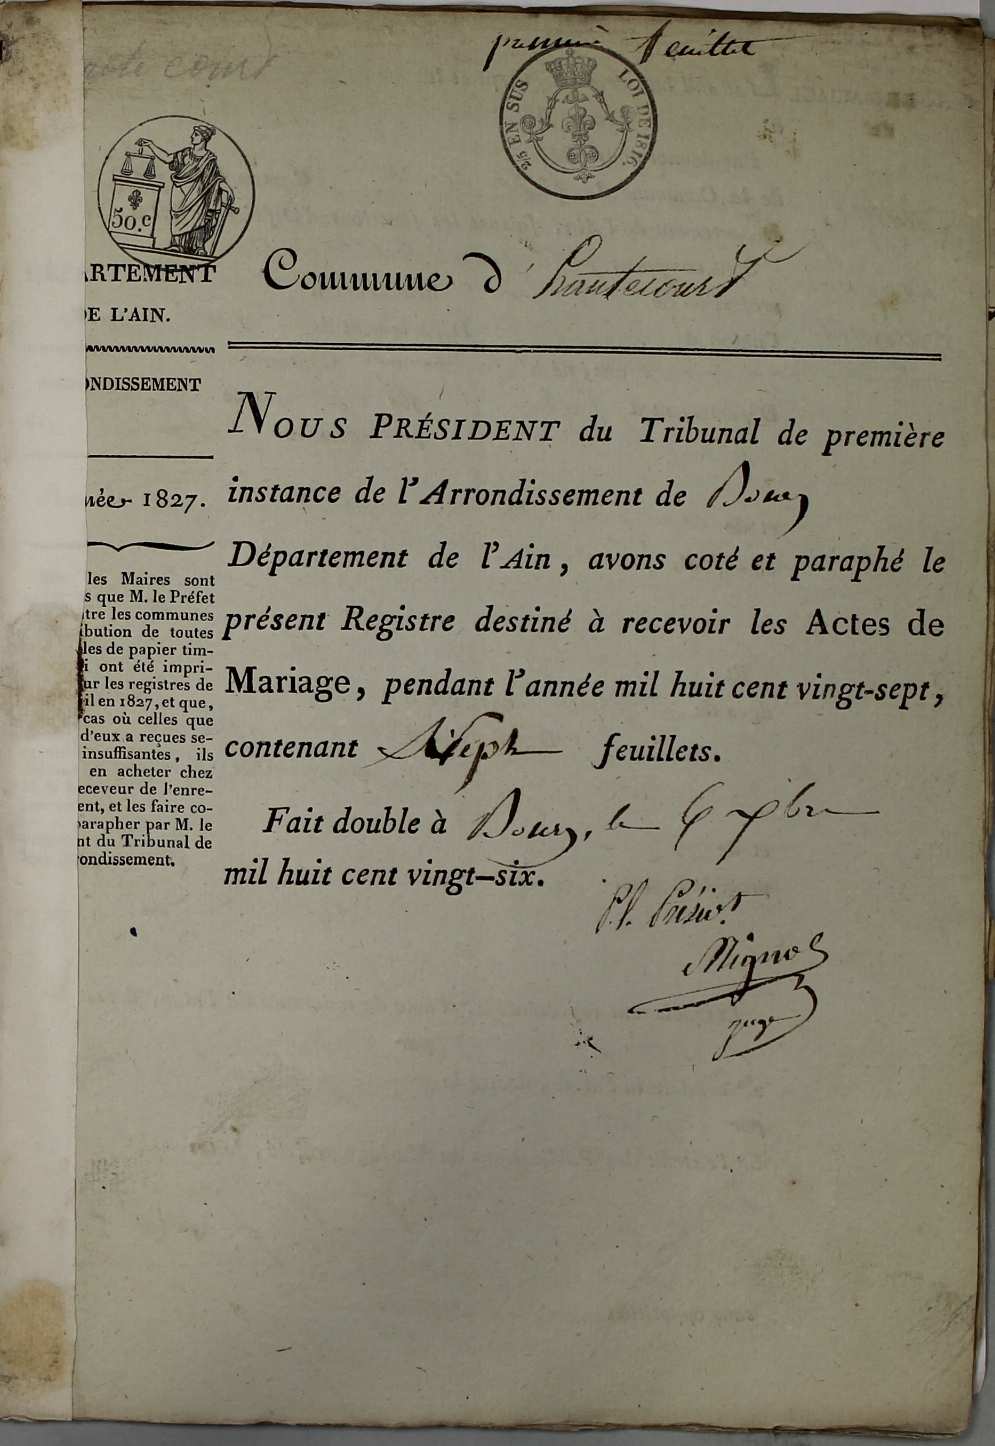 premier feuillet
haute court
2/5 EN SUS LOI DE 1816.
50.c
ARTEMENT
DE L'AIN.
ONDISSEMENT
née 1827.
les Maires sont
s que M. le Préfet
tre les communes
ibution de toutes
les de papier tim-
i ont été impri-
ur les registres de
il en 1827, et que,
cas où celles que
d'eux a reçues se-
insuffisantes, ils
en acheter chez
eceveur de l'enre-
ent, et les faire co-
parapher par M. le
nt du Tribunal de
ondissement.
Commune d'hautecourt
NOUS PRÉSIDENT du Tribunal de première
instance de l'Arrondissement de Bourg
Département de l'Ain, avons coté et paraphé le
présent Registre destiné à recevoir les Actes de
Mariage, pendant l'année mil huit cent vingt-sept,
contenant feuillets.
Fait double à Bourg, le 6 xbre
mil huit cent vingt-six.
P. le Présidt
Mignot
juge